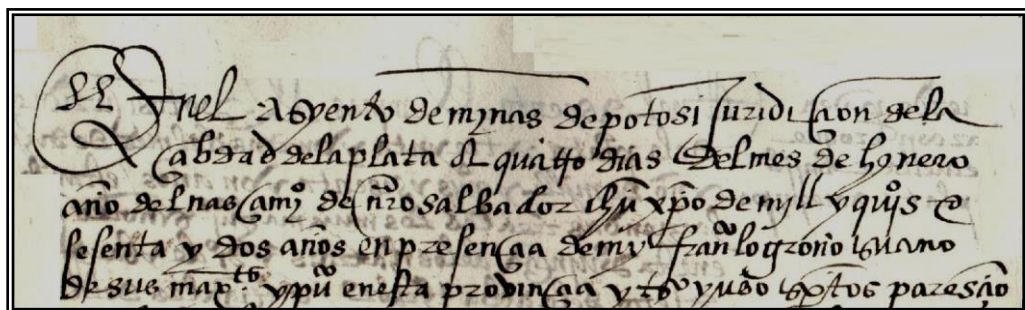 Enel asyento de mynas de potosi juridicion dela
çibdad dela plata a quatro dias del mes de henero
año del nasçimyº de nrо salbador ihu xpo de myll y quiºs e
sesenta y dos años en presençia de my franº logroño scriuano
de sus magts ppcº en esta provinçia y tsº yuso scriptos paresçio